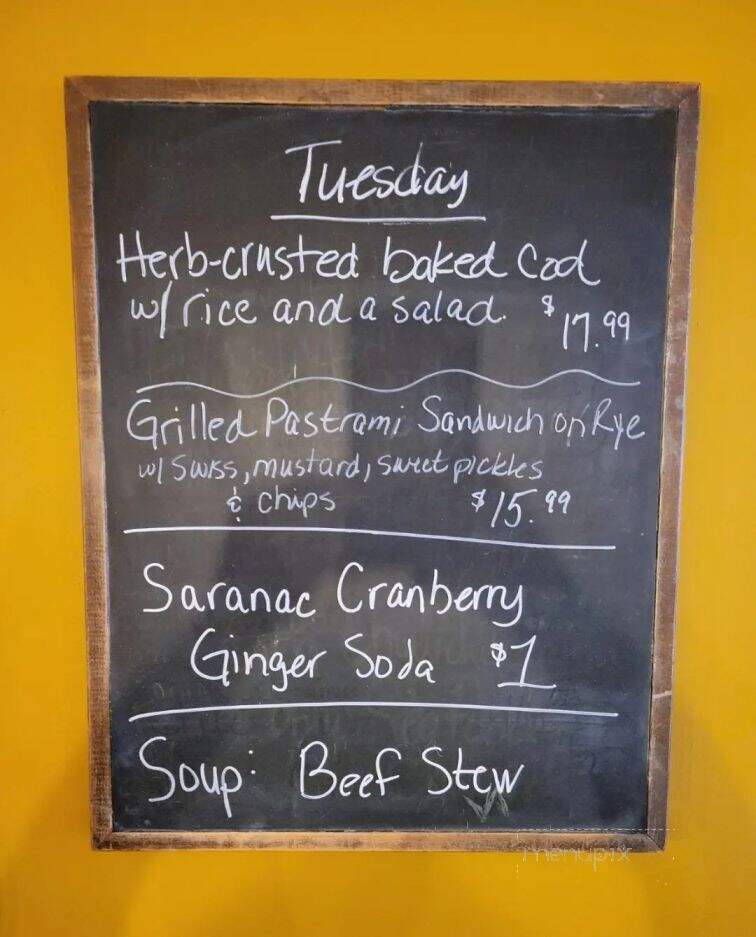 Tuesday
Herb-crusted baked Cod
w/ rice and a salad. $17.99
Grilled Pastrami Sandwich on Rye
w/ Swiss, mustard, sweet pickles
& chips $15.99
Saranac Cranberry
Ginger Soda $1
Soup: Beef Stew
menupix